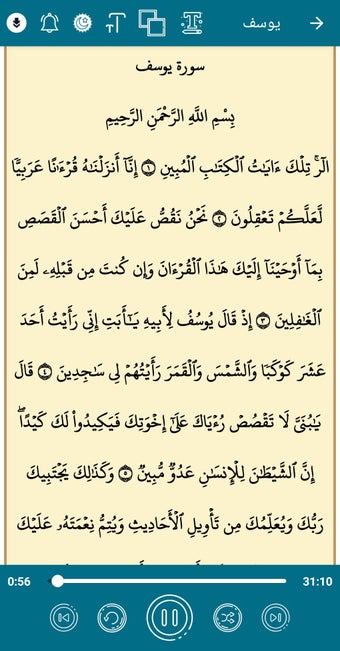 يوسف
سورة يوسف
بِسْمِ اللَّهِ الرَّحْمَنِ الرَّحِيمِ
الٓرۚ تِلْكَ ءَايَٰتُ ٱلْكِتَٰبِ ٱلْمُبِينِ ١ إِنَّآ أَنزَلْنَٰهُ قُرْءَٰنًا عَرَبِيًّا
لَّعَلَّكُمْ تَعْقِلُونَ ٢ نَحْنُ نَقُصُّ عَلَيْكَ أَحْسَنَ ٱلْقَصَصِ
بِمَآ أَوْحَيْنَآ إِلَيْكَ هَٰذَا ٱلْقُرْءَانَ وَإِن كُنتَ مِن قَبْلِهِۦ لَمِنَ
ٱلْغَٰفِلِينَ ٣ إِذْ قَالَ يُوسُفُ لِأَبِيهِ يَٰٓأَبَتِ إِنِّى رَأَيْتُ أَحَدَ
عَشَرَ كَوْكَبًا وَٱلشَّمْسَ وَٱلْقَمَرَ رَأَيْتُهُمْ لِى سَٰجِدِينَ ٤ قَالَ
يَٰبُنَىَّ لَا تَقْصُصْ رُءْيَاكَ عَلَىٰٓ إِخْوَتِكَ فَيَكِيدُوا۟ لَكَ كَيْدًاۖ
إِنَّ ٱلشَّيْطَٰنَ لِلْإِنسَٰنِ عَدُوٌّ مُّبِينٌ ٥ وَكَذَٰلِكَ يَجْتَبِيكَ
رَبُّكَ وَيُعَلِّمُكَ مِن تَأْوِيلِ ٱلْأَحَادِيثِ وَيُتِمُّ نِعْمَتَهُۥ عَلَيْكَ
0:56 31:10